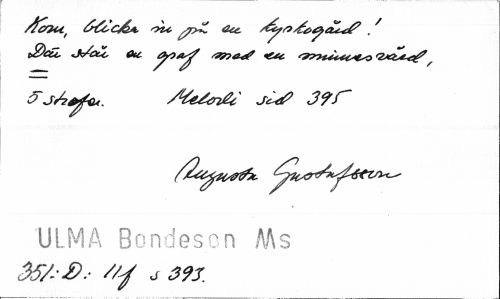 Kom, blicka in på en kyrkogård!
Där står en graf med en minnesvård,
=
5 strofer. Melodi sid 395
Augusta Gustafsson
ULMA Bondeson Ms
351:D: 11f s 393.